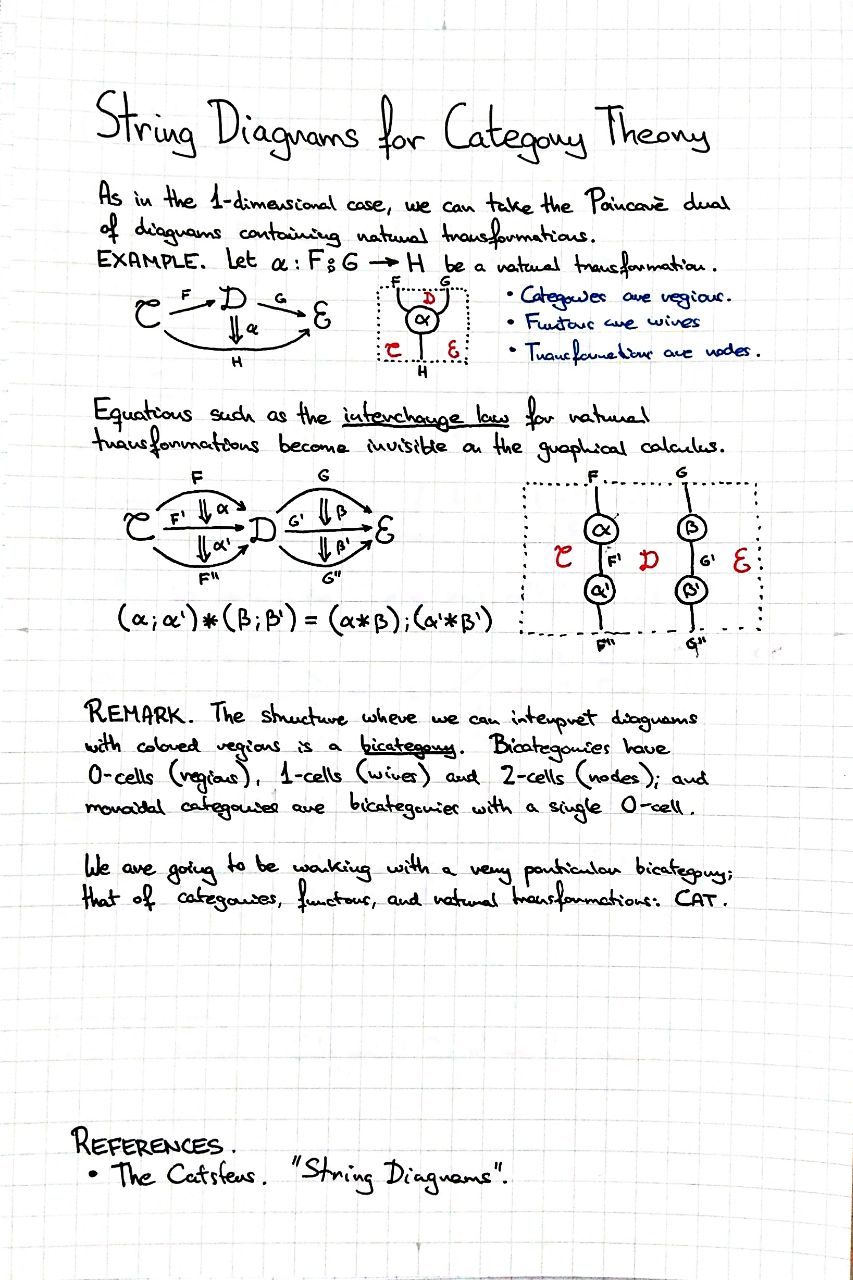 String Diagrams for Category Theory
As in the 1-dimensional case, we can take the Poincarè dual
of diagrams containing natural transformations.
EXAMPLE. Let α : F ⨾ G → H be a natural transformation.
C F D G E
⇓ α
H
F G
D
α
C E
H
• Categories are regions.
• Functors are wires
• Transformations are nodes.
Equations such as the interchange law for natural
transformations become invisible on the graphical calculus.
F G
⇓ α ⇓ β
C F' D G' E
⇓ α' ⇓ β'
F'' G''
(α ; α') * (β ; β') = (α * β) ; (α' * β')
F G
α β
C F' D G' E
α' β'
F'' G''
REMARK. The structure where we can interpret diagrams
with colored regions is a bicategory. Bicategories have
0-cells (regions), 1-cells (wires) and 2-cells (nodes); and
monoidal categories are bicategories with a single 0-cell.
We are going to be working with a very particular bicategory;
that of categories, functors, and natural transformations: CAT.
REFERENCES.
• The Catsters. "String Diagrams".